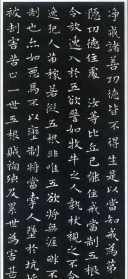 淨戒諸善功德皆不得生是以當知戒為第
隱功德住處汝等比丘已能住戒當制五根
令放逸入於五欲譬如牧牛之人執杖視之不
逸犯人苗稼若縱五根非唯五欲將無崖畔不
制也亦如惡馬不以轡制將當牽人墜於坑
被劫害苦止一世五根賊禍殃及累世為害甚